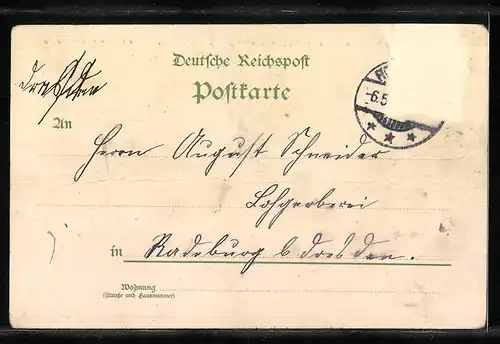 Deutsche Reichspost
Postkarte
Dresden
-6.5
An
Herrn August Schneider
Lohgerberei
in Radeburg b Dresden.
Wohnung
(Straße und Hausnummer)